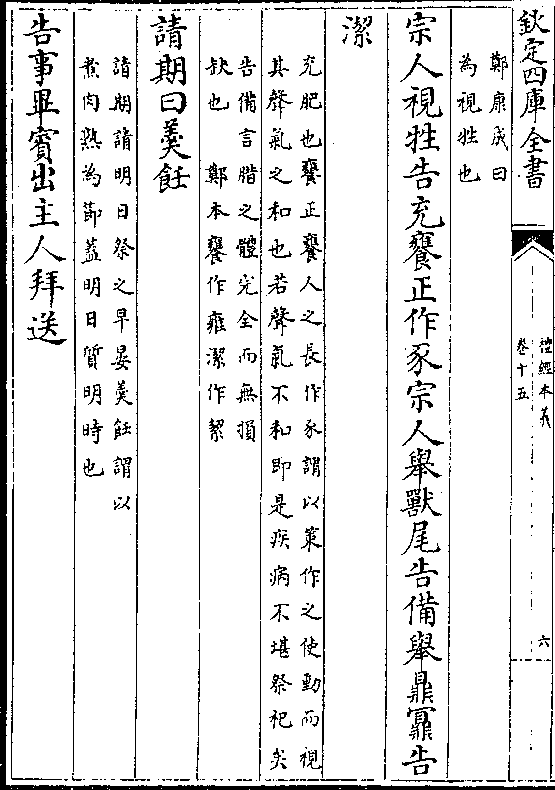 欽定四庫全書
禮經本義
卷十五
六
鄭康成曰
為視牲也
宗人視牲告充饔正作豕宗人舉獸尾告備舉鼎鼏告
潔
充肥也饔正饔人之長作豕謂以策作之使動而視
其聲氣之和也若聲氣不和即是疾病不堪祭祀矣
告備言腊之體完全而無損
缺也 鄭本饔作雍潔作絜
請期曰羹飪
請期請明日祭之早晏羹飪謂以
煮肉熟為節蓋明日質明時也
告事畢賓出主人拜送